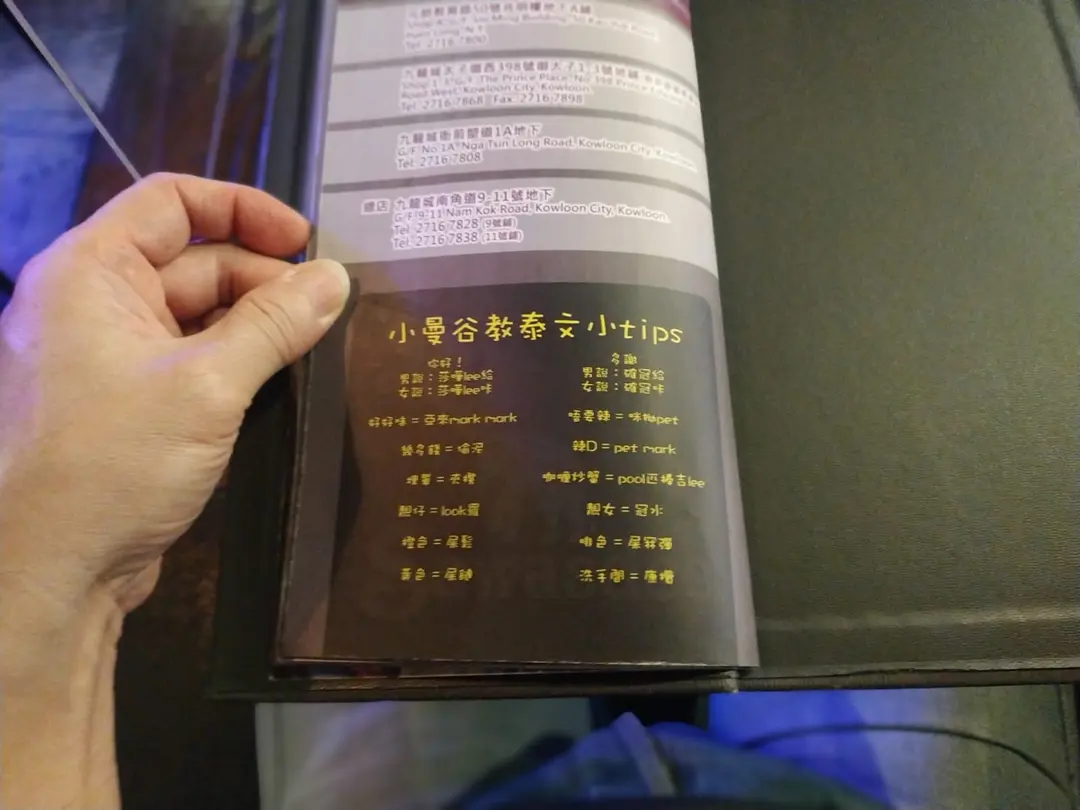 元朗教育路50號兆明樓地下A鋪
Tel: 2716 7800
九龍城太子道西398號御太子1-3號地鋪
Shop 1-3, G/F, The Prince Place, No. 398 Prince Edward
Road West, Kowloon City, Kowloon.
Tel: 2716 7868 Fax: 2716 7898
九龍城衙前塱道1A地下
G/F No 1A, Nga Tsin Long Road, Kowloon City, Kowloon.
Tel: 2716 7808
總店 九龍城南角道9-11號地下
G/F 9-11 Nam Kok Road, Kowloon City, Kowloon.
Tel: 2716 7828 (9號鋪)
Tel: 2716 7838 (11號鋪)
小曼谷教泰文小tips
你好！
男說：莎嘩lee給
女說：莎嘩lee咔
多謝
男說：確冠給
女說：確冠咔
好好味 = 亞來mark mark
唔要辣 = 咪拗pet
幾多錢 = 倫泥
辣D = pet mark
埋單 = 夾檔
咖喱炒蟹 = pool匹楊吉lee
靚仔 = look羅
靚女 = 冠水
橙色 = 屎鬆
啡色 = 屎冧彈
黃色 = 屎鏈
洗手間 = 康檽